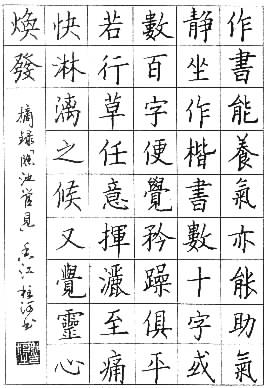 作書能養氣亦能助氣
静坐作楷書數十字或
數百字便覺矜躁俱平
若行草任意揮灑至痛
快淋漓之候又覺靈心
煥發
摘録「臨池管見」香江